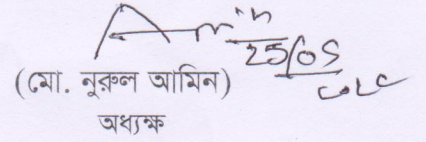 Amin
25/05
(মো. নুরুল আমিন)
অধ্যক্ষ